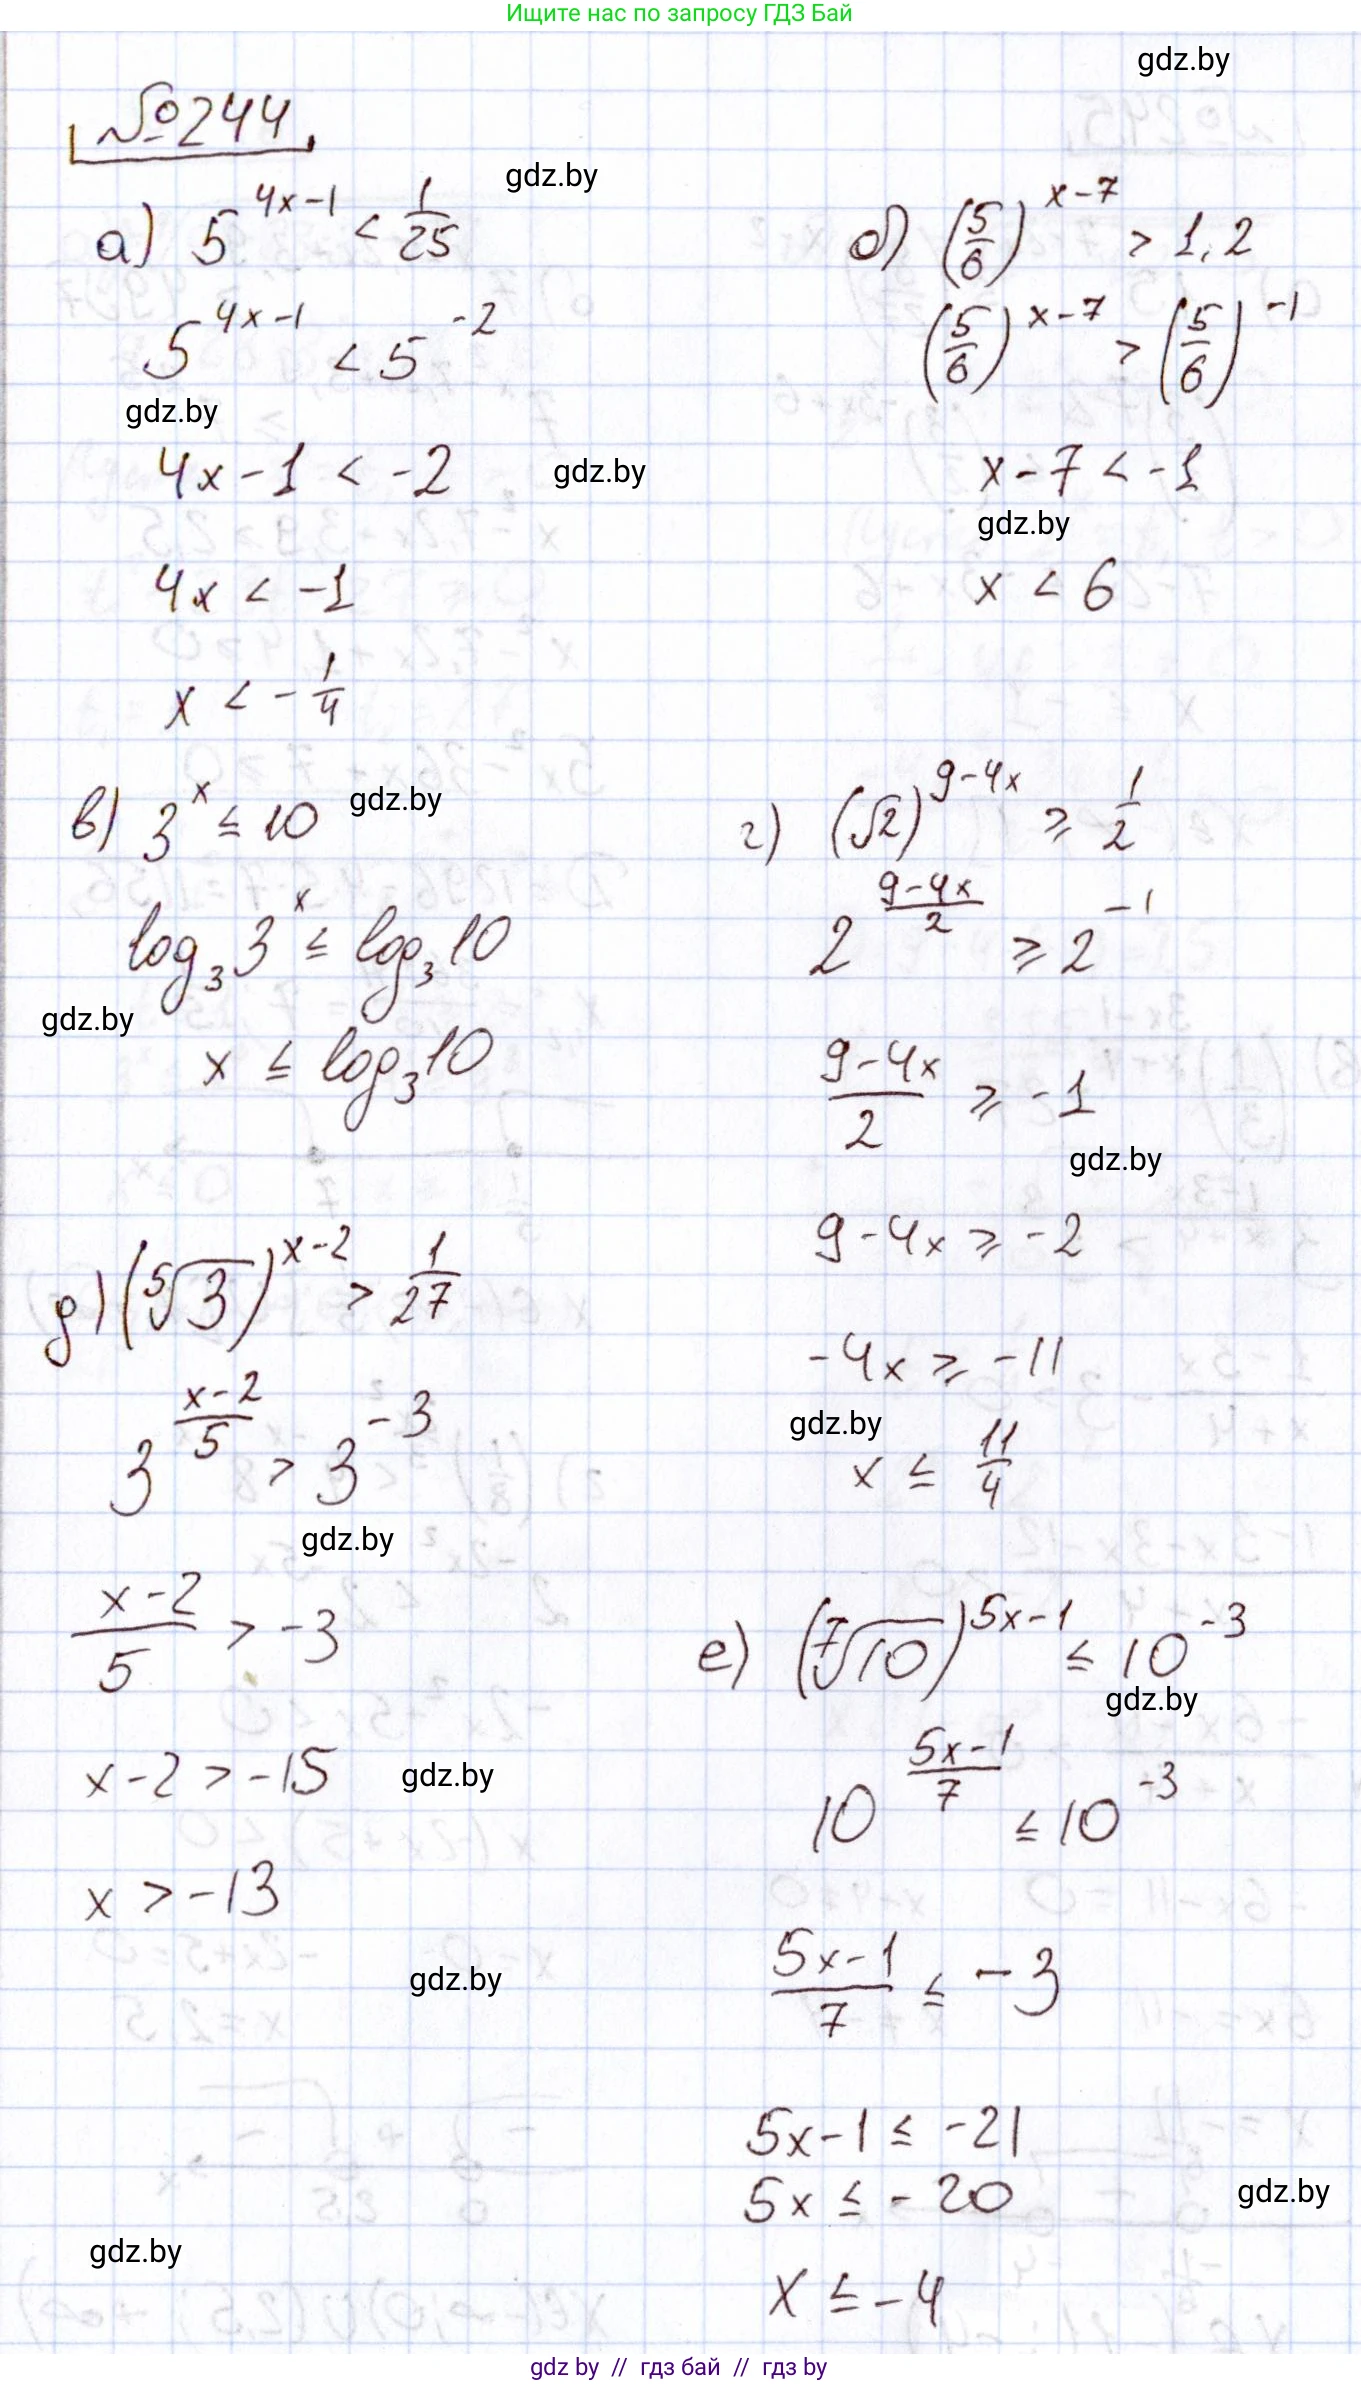 Ищите нас по запросу ГДЗ Бай
gdz.by
№244
gdz.by
а) 5^(4x-1) < 1/25
5^(4x-1) < 5^(-2)
gdz.by
4x-1 < -2
gdz.by
4x < -1
x < -1/4
б) (5/6)^(x-7) > 1,2
(5/6)^(x-7) > (5/6)^(-1)
x-7 < -1
gdz.by
x < 6
в) 3^x ≤ 10
gdz.by
log₃3^x ≤ log₃10
gdz.by
x ≤ log₃10
г) (√2)^(9-4x) ≥ 1/2
2^((9-4x)/2) ≥ 2^(-1)
(9-4x)/2 ≥ -1
gdz.by
9-4x ≥ -2
-4x ≥ -11
gdz.by
x ≤ 11/4
д) (⁵√3)^(x-2) > 1/27
3^((x-2)/5) > 3^(-3)
gdz.by
(x-2)/5 > -3
x-2 > -15
gdz.by
x > -13
gdz.by
е) (⁷√10)^(5x-1) ≤ 10^(-3)
gdz.by
10^((5x-1)/7) ≤ 10^(-3)
(5x-1)/7 ≤ -3
5x-1 ≤ -21
5x ≤ -20
gdz.by
gdz.by
x ≤ -4
gdz by // гдз бай // гдз by